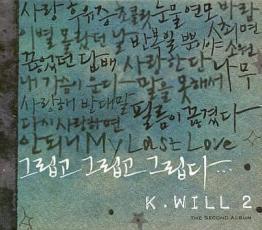 사랑 후유증 초콜릿 눈물 연모 바람
이별 몰랐던 날 반복일 뿐야 최면 소원
끊었던 담배 사랑한다 나무
내 가슴이 운다 말을 못해서
사랑해 받대말 필름이 끊겼다
다시 사랑하면
안되니 My Last Love
그립고 그립고 그립다...
K.WILL 2
THE SECOND ALBUM